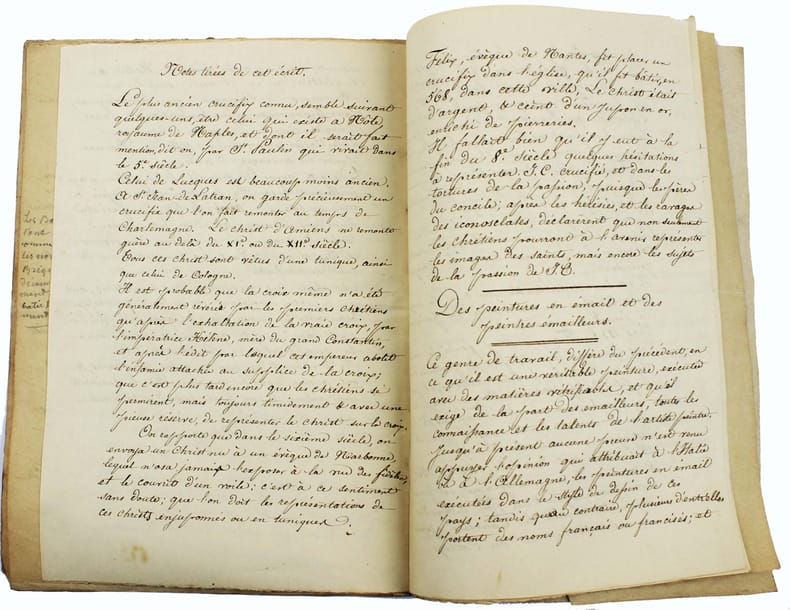 Notes tirées de cet écrit.
Le plus ancien crucifix connu, semble suivant
quelques-uns, être celui qui existe à Nôle,
royaume de Naples, et dont il serait fait
mention, dit on, par St. Paulin qui vivait dans
le 5e. siècle.
Celui de Lucques est beaucoup moins ancien.
A St. Jean-De-Latran, on garde précieusement un
crucifix que l'on fait remonter au temps de
Charlemagne. Le christ d'Amiens ne remonte
guère au delà du XIe. ou du XIIe. siècle.
Tous ces christ sont vêtus d'une tunique, ainsi
que celui de Cologne.
Il est probable que la croix même n'a été
généralement révérée par les premiers chrétiens
qu'après l'exhaltation de la vraie croix, par
l'impératrice Hélène, mère du grand Constantin,
et après l'édit par lequel ces empereur abolit
l'infamie attachée au supplice de la croix;
que c'est plus tard encore que les chrétiens se
permirent, mais toujours timidement & avec une
pieuse réserve, de représenter le Christ sur la croix.
On rapporte que dans le sixième siècle, on
envoya un Christ nu à un évêque de Narbonne,
lequel n'osa jamais l'exposer à la vue des fidèles,
et le couvrit d'un voile; c'est à ce sentiment
sans doute; que l'on doit les représentations de
ces Christs enjuponnés ou en tuniques.
Les
comme
les
Félix, évêque de Nantes, fit placer un
crucifix dans l'église, qu'il fit bâtir, en
568, dans cette ville. Le Christ était
d'argent, & ceint d'un jupon en or,
enrichi de pierreries.
Il fallait bien qu'il y eut à la
fin du 8e. siècle quelques hésitations
à représenter J.C. crucifié, et dans les
tortures de la passion, puisque les pères
du concile; après les hérésies, et les ravages
des iconoclastes, déclarèrent que non seulement
les chrétiens pourront à l'avenir représenter
les images des saints, mais encore les sujets
de la passion de J.C.
Des peintures en émail et des
peintres émailleurs.
Ce genre de travail, diffère du précédent, en
ce qu'il est une véritable peinture, exécutée
avec des matières vitrifiables, et qu'il
exige de la part des émailleurs, toutes les
connaissances et les talents de l'artiste peintre.
Jusqu'à présent aucune preuve n'est venu
appuyer l'opinion qui attribuait à l'Italie
ou à l'Allemagne, les peintures en émail
exécutées dans le style de dessin de ces
pays; tandis qu'au contraire, plusieurs d'entr'elles
portent des noms français ou francisés; et